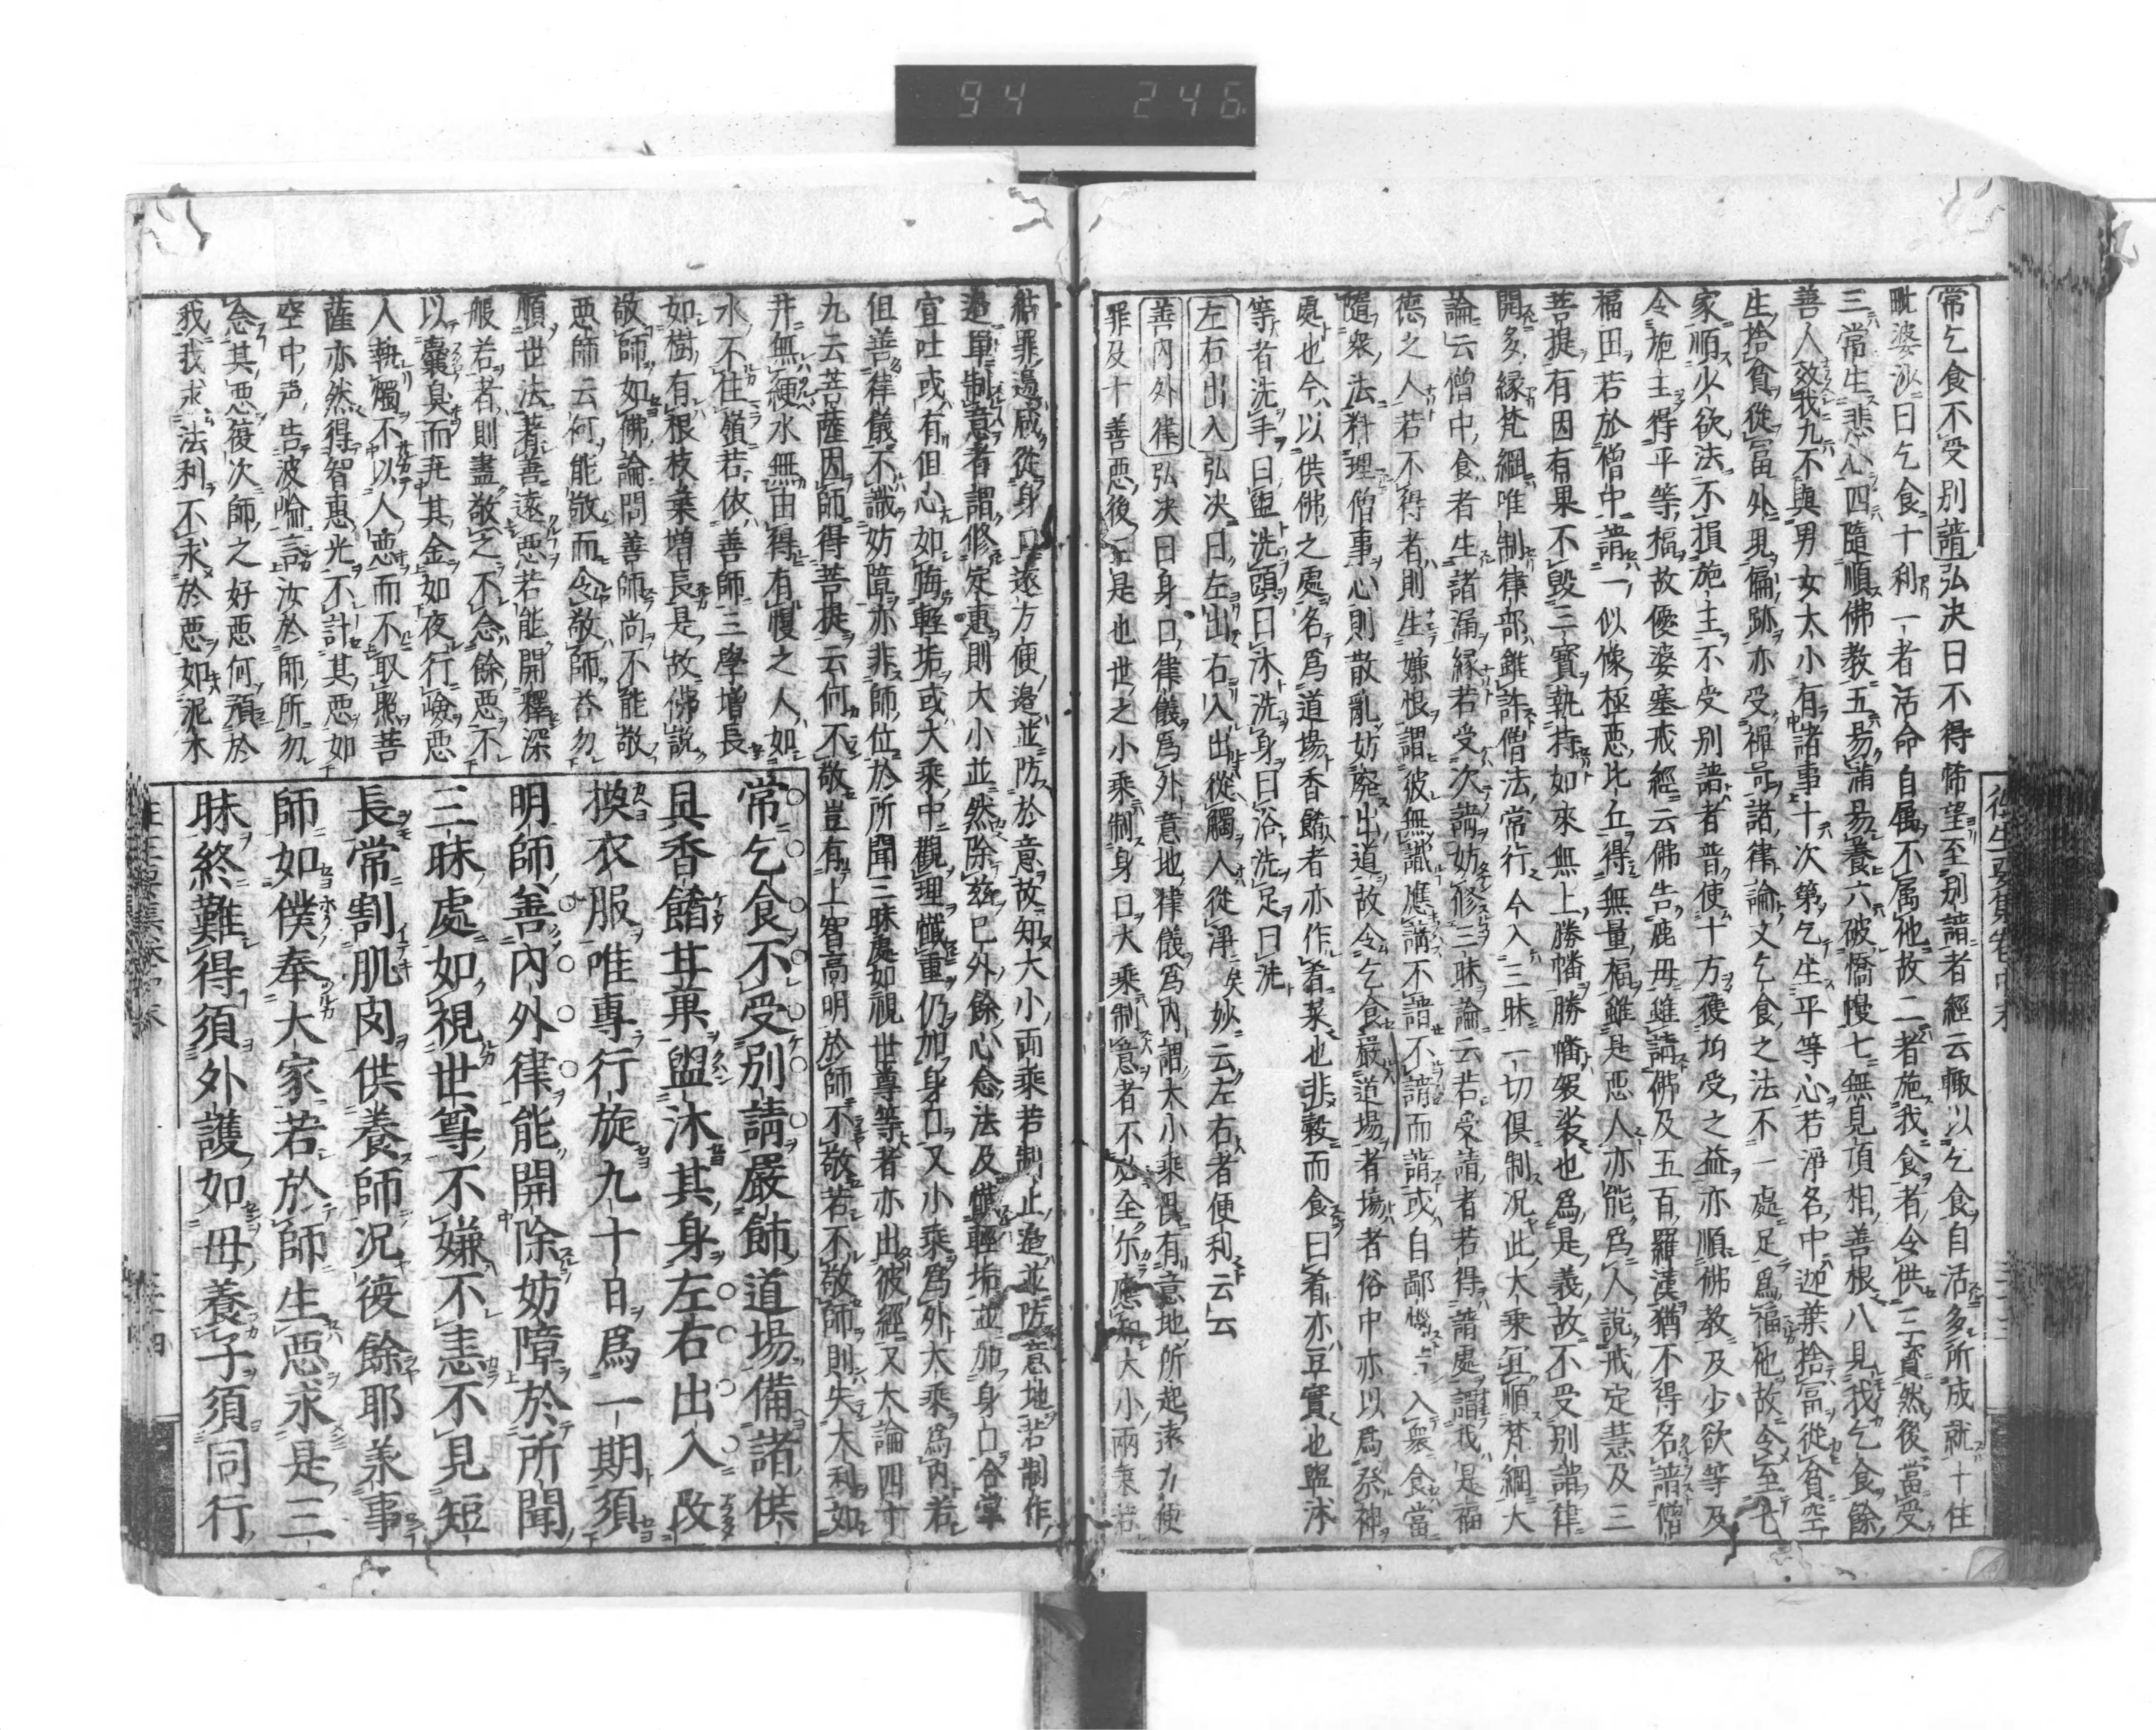 94 246
往生要集卷中末
常乞食不受別請弘决曰不得悕望至別請者經云輙以乞食自活多所成就十住
毗婆沙曰乞食十利一者活命自属不属他故二者施我食者令供三寳然後當受
三常生悲心四隨順佛教五易滿易養六破憍慢七無見頂相善根八見我乞食餘
善人效我九不與男女大小有諸事十次第乞生平等心若淨名中迦葉捨富從貧空
生捨貧從富外現偏跡亦受彈呵諸律論文乞食之法不一處足爲福他故令至七
家順少欲法不損施主不受別請者普使十方獲均受之益亦順佛教及少欲等及
令施主得平等福故優婆塞戒經云佛告鹿母雖請佛及五百羅漢猶不得名請僧
福田若於僧中請一似像極惡比丘得無量福雖是惡人亦能爲人說戒定慧及三
菩提有因有果不毀三寳執持如來無上勝幡勝幡袈裟也爲是義故不受別請律
開多縁梵綱唯制律部雖許僧法常行今入三昧一切俱制况此大乘冝順梵綱大
論云僧中食者生諸漏縁若受次請妨修三昧論云若受請者若得請處謂我是福
德之人若不得者則生嫌恨謂彼無識應請不請不請而請或自鄙入衆食當
隨衆法料理僧事心則散亂妨廢出道故令乞食嚴道場者塲者俗中亦以爲祭神
處也今以供佛之處名爲道場香餚者亦作肴菜也非穀而食曰肴亦豆實也盥沐
等者洗手曰盥洗頭曰沐洗身曰浴洗足曰洗
左右出入弘决曰左出右入出從觸入從淨矣妙云左右者便利云云
善內外律弘决曰身口律儀爲外意地律儀爲內謂大小乘畏有意地所起遠方便
罪及十善惡後是也世之小乘制身口大乘制意者不必全尔應知大小兩乘若
結罪邊咸從身口遠方便邊並防於意故知大小兩乘若制止邊並防意地若制作
邊單制意者謂修定惠則大小並然除茲已外餘心念法及懺輕垢並加身口合掌
宜吐或有但心如悔輕垢或大乘中觀理懺重仍加身口又小乘爲外大乘爲內若
但善律儀不識妨障亦非師位於所聞三昧處如視世尊等者亦出彼經又大論四十
九云菩薩因師得菩提云何不敬豈有上智高明於師不敬若不敬師則失大利如
井無綆水無由得有慢之人如
水不住嶺若依善師三學增長
如樹有根枝葉增長是故佛說
敬師如佛論問善師尚不能敬
惡師云何能敬而令敬師荅勿
順世法著善遠惡若能開釋深
般若者則盡敬之不念餘惡不
以囊臭而弃其金如夜行嶮惡
人執燭不以人惡而不取照菩
薩亦然得智惠光不計其惡如
空中声告波崙言汝於師所勿
念其惡復次師之好惡何預於
我我求法利不求於惡如泥木
常乞食不受別請嚴飾道場備諸供
具香餚甘菓盥沐其身左右出入改
換衣服唯專行旋九十日爲一期須
明師善內外律能開除妨障於所聞
三昧處如視世尊不嫌不恚不見短
長常割肌肉供養師况復餘耶羕事
師如僕奉大家若於師生惡求是三
昧終難得須外護如母養子須同行